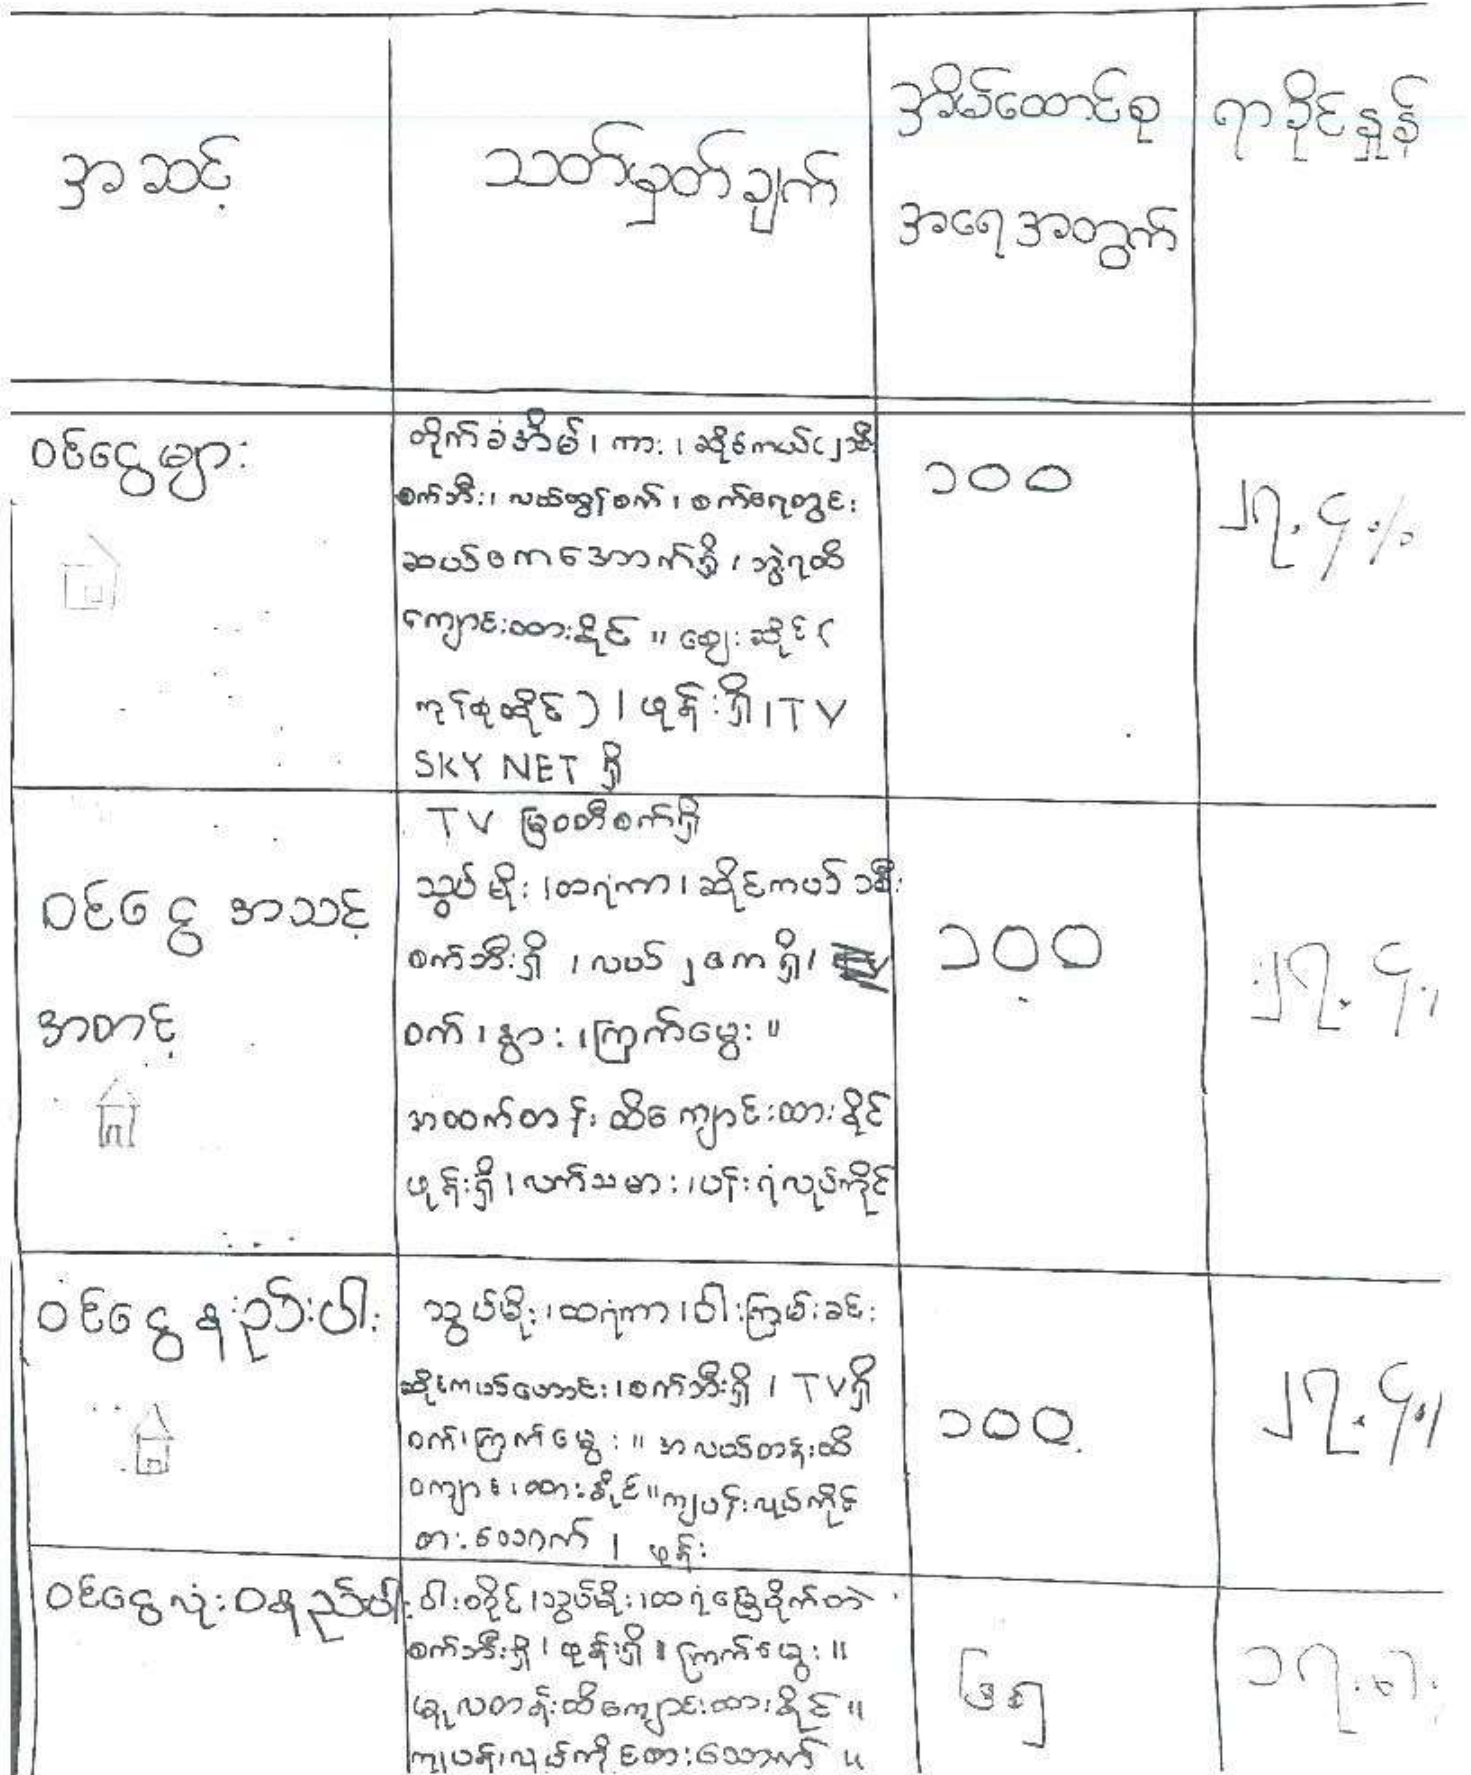 အဆင့်
သတ်မှတ်ချက်
အိမ်ထောင်စု
အရေအတွက်
ရာခိုင်နှုန်
ဝင်ငွေများ
တိုက်ခံအိမ်၊ ကား၊ ဆိုင်ကယ်(၂)စီး
စက်ဘီး၊ လယ်ထွန်စက်၊ စက်ရေတွင်း
ဆယ်ဧကအောက်ရှိ၊ ဘွဲ့ရထိ
ကျောင်းထားနိုင်။ ဈေးဆိုင် (
ကုန်စုံဆိုင်) ၊ ဖုန်းရှိ၊ TV
SKY NET ရှိ
၁၀၀
၂၇.၄%
ဝင်ငွေ အသင့်
အတင့်
TV မြဝတီစက်ရှိ
သွပ်မိုး၊ ထရံကာ၊ ဆိုင်ကယ် ၁စီး
စက်ဘီးရှိ ၊ လယ် ၂ ဧက ရှိ၊
ဝက်၊ နွား၊ ကြက်မွေး။
အထက်တန်းထိကျောင်းထားနိုင်
ဖုန်းရှိ၊ လက်သမား၊ ပန်းရံလုပ်ကိုင်
၁၀၀
၂၇.၄
ဝင်ငွေနည်းပါး
သွပ်မိုး၊ ထရံကာ၊ ဝါးကြမ်းခင်း
ဆိုင်ကယ်ဟောင်း၊ စက်ဘီးရှိ ၊ TVရှိ
ဝက်၊ ကြက်မွေး။ အလယ်တန်းထိ
ကျောင်းထားနိုင်။ ကျပန်းလုပ်ကိုင်
စားသောက် ၊ ဖုန်း
၁၀၀
၂၇.၄
ဝင်ငွေလုံးဝနည်းပါး
ဝါးတိုင်၊ သွပ်မိုး၊ ထရံ မြေစိုက်တဲ
စက်ဘီးရှိ၊ ဖုန်းရှိ။ ကြက်မွေး။
မူလတန်းထိကျောင်းထားနိုင်။
ကျပန်းလုပ်ကိုင်စားသောက်။
၆၅
၁၇.၈